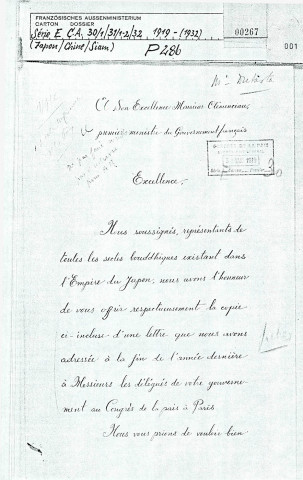 FRANZÖSISCHES AUSSENMINISTERIUM
CARTON DOSSIER
Série E. C.A. 30/1/31/1-2/32 1919-(1932)
(Japon/Chine/Siam) P 286
00267
001
A Son Excellence Monsieur Clémenceau,
premier ministre du Gouvernement français
Excellence,
Nous soussignés, représentants de
toutes les sectes bouddhiques existant dans
l'Empire du Japon, nous avons l'honneur
de vous offrir respectueusement la copie
ci-incluse d'une lettre que nous avons
adressée à la fin de l'année dernière
à Messieurs les délégués de votre gouverne-
ment au Congrès de la paix à Paris
Nous vous prions de vouloir bien